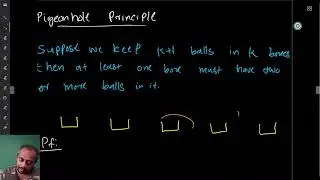 Pigeonhole Principle
Suppose we keep k+1 balls in k boxes
then at least one box must have two
or more balls in it.
Pf: